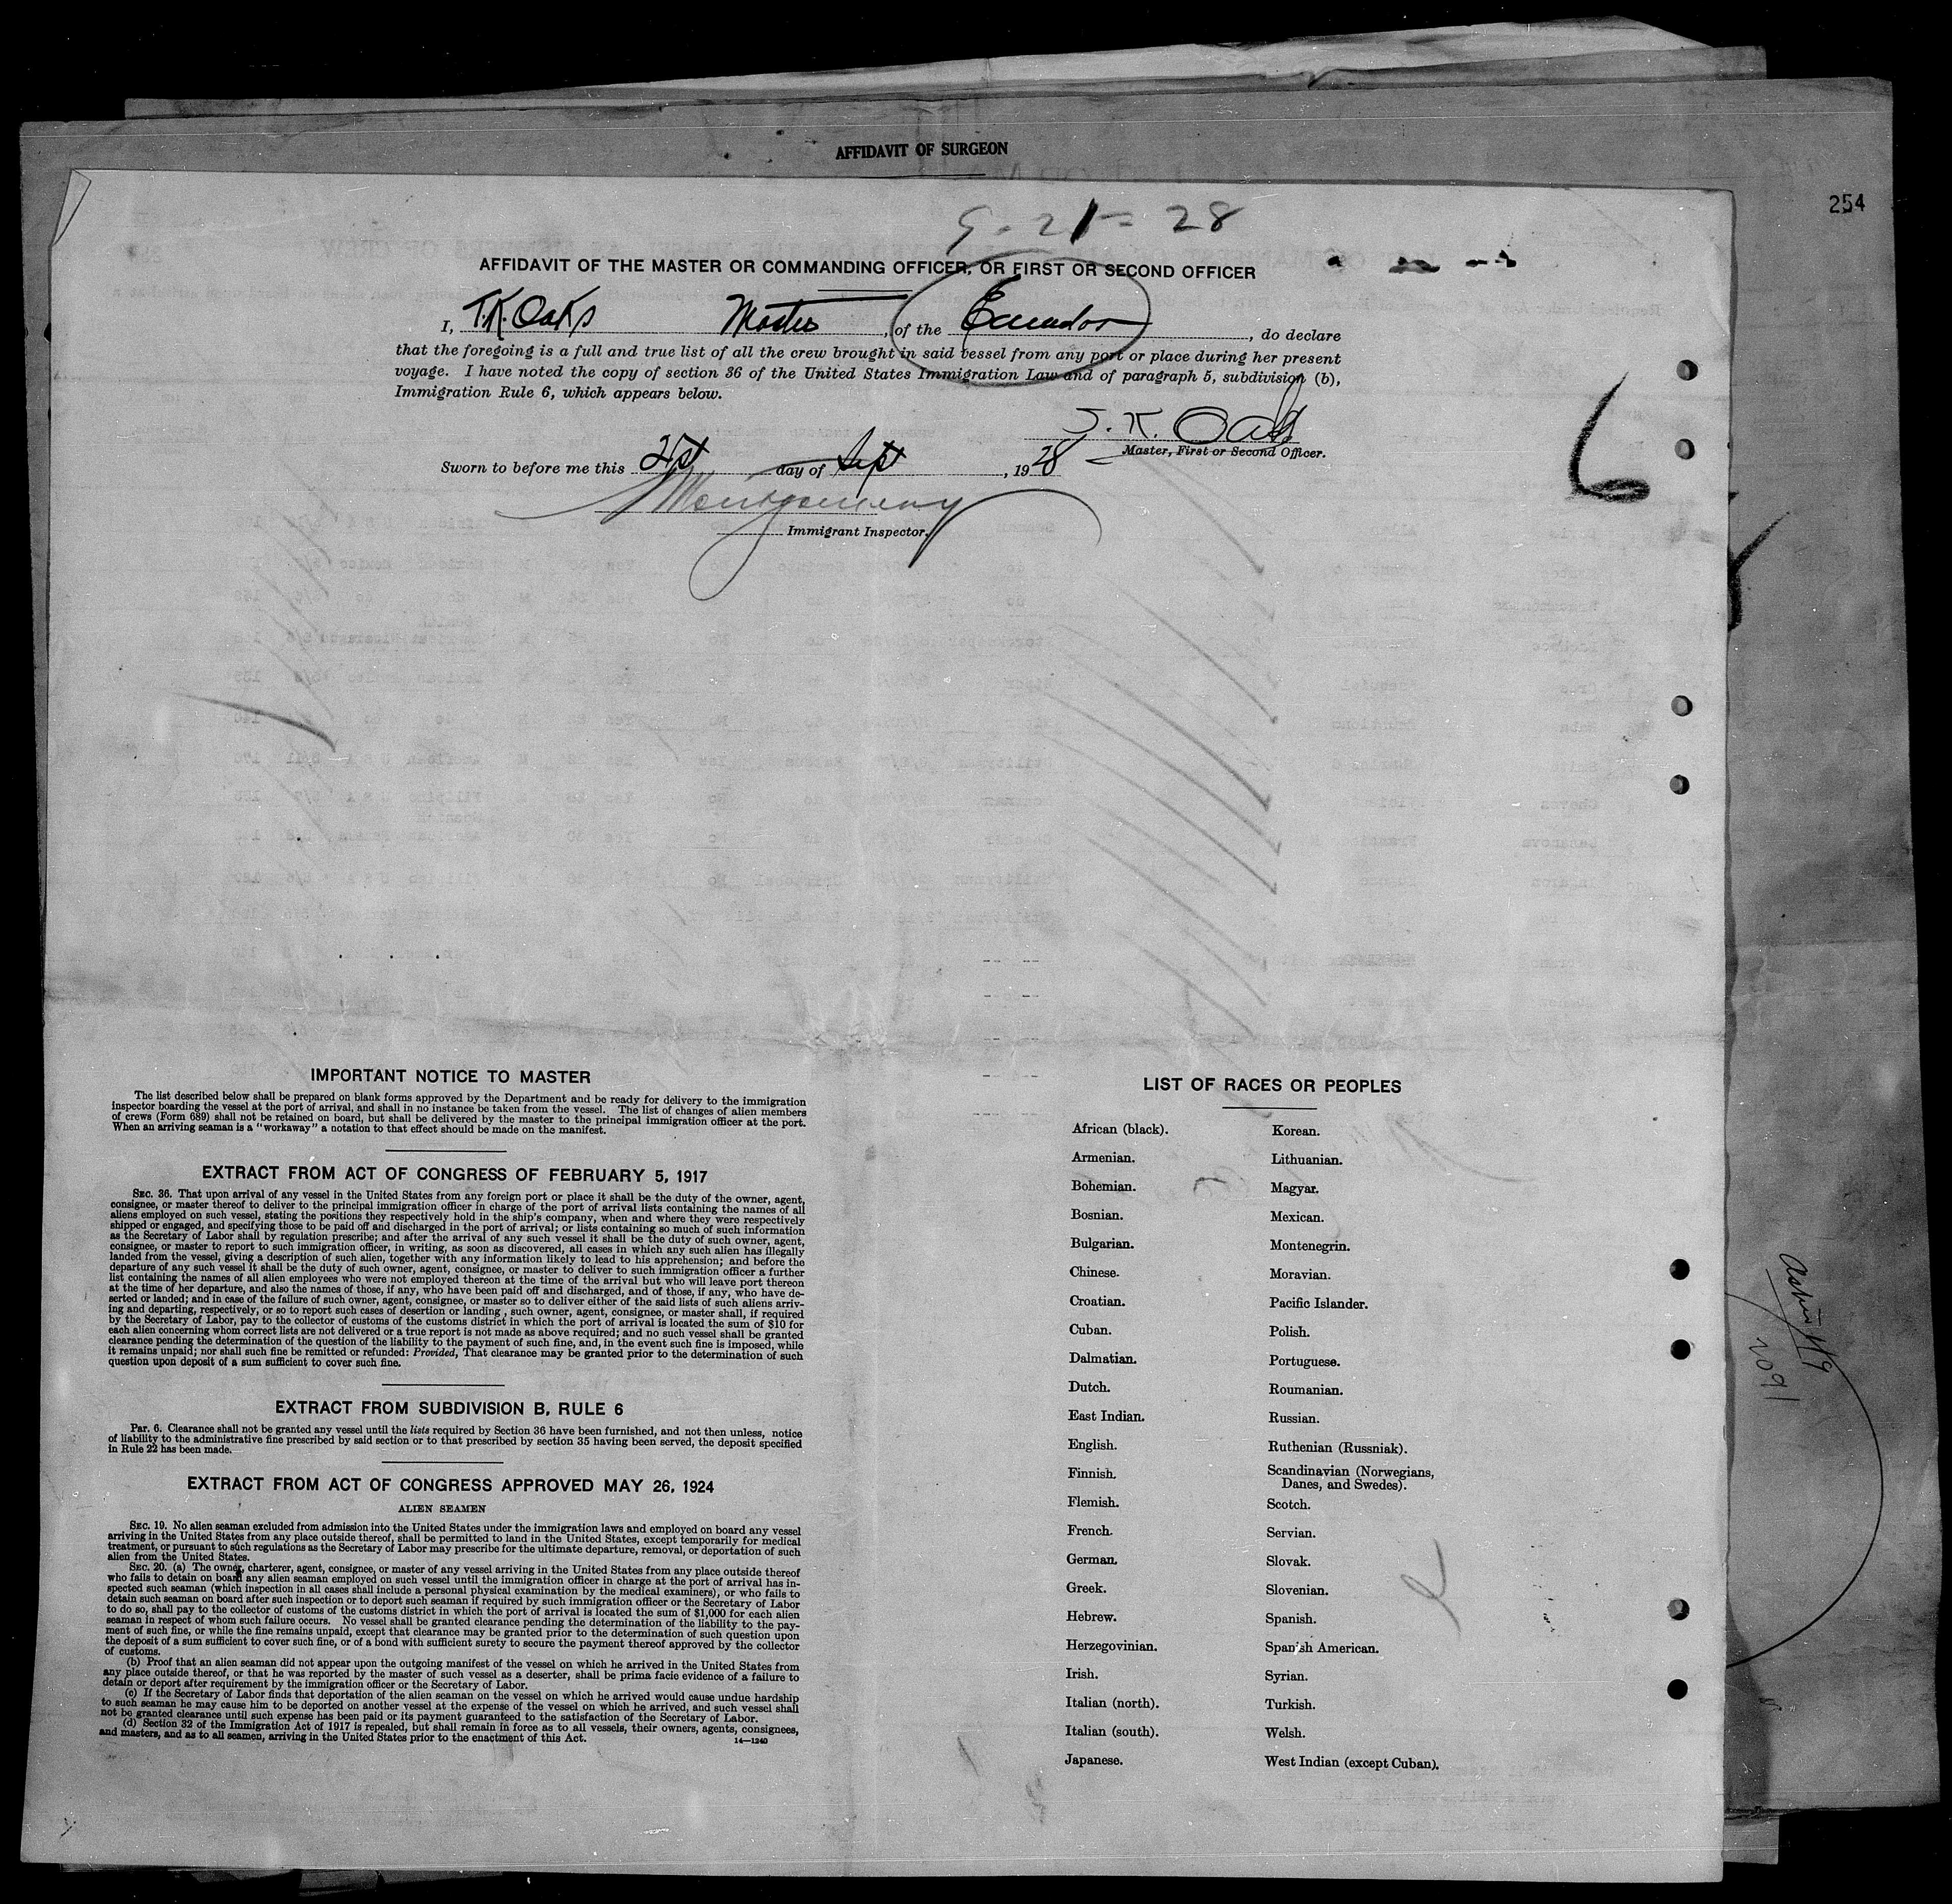 AFFIDAVIT OF SURGEON
254
9-21-28
AFFIDAVIT OF THE MASTER OR COMMANDING OFFICER, OR FIRST OR SECOND OFFICER
I, T.K. Oaks Master, of the Ecuador, do declare
that the foregoing is a full and true list of all the crew brought in said vessel from any port or place during her present
voyage. I have noted the copy of section 36 of the United States Immigration Law and of paragraph 5, subdivision (b),
Immigration Rule 6, which appears below.
T. K. Oaks
Master, First or Second Officer.
Sworn to before me this 21st day of Sept, 1928
Montgomery
Immigrant Inspector.
6
IMPORTANT NOTICE TO MASTER
The list described below shall be prepared on blank forms approved by the Department and be ready for delivery to the immigration
inspector boarding the vessel at the port of arrival, and shall in no instance be taken from the vessel. The list of changes of alien members
of crews (Form 689) shall not be retained on board, but shall be delivered by the master to the principal immigration officer at the port.
When an arriving seaman is a "workaway" a notation to that effect should be made on the manifest.
EXTRACT FROM ACT OF CONGRESS OF FEBRUARY 5, 1917
SEC. 36. That upon arrival of any vessel in the United States from any foreign port or place it shall be the duty of the owner, agent,
consignee, or master thereof to deliver to the principal immigration officer in charge of the port of arrival lists containing the names of all
aliens employed on such vessel, stating the positions they respectively hold in the ship's company, when and where they were respectively
shipped or engaged, and specifying those to be paid off and discharged in the port of arrival; or lists containing so much of such information
as the Secretary of Labor shall by regulation prescribe; and after the arrival of any such vessel it shall be the duty of such owner, agent,
consignee, or master to report to such immigration officer, in writing, as soon as discovered, all cases in which any such alien has illegally
landed from the vessel, giving a description of such alien, together with any information likely to lead to his apprehension; and before the
departure of any such vessel it shall be the duty of such owner, agent, consignee, or master to deliver to such immigration officer a further
list containing the names of all alien employees who were not employed thereon at the time of the arrival but who will leave port thereon
at the time of her departure, and also the names of those, if any, who have been paid off and discharged, and of those, if any, who have de-
serted or landed; and in case of the failure of such owner, agent, consignee, or master so to deliver either of the said lists of such aliens arriv-
ing and departing, respectively, or so to report such cases of desertion or landing, such owner, agent, consignee, or master shall, if required
by the Secretary of Labor, pay to the collector of customs of the customs district in which the port of arrival is located the sum of $10 for
each alien concerning whom correct lists are not delivered or a true report is not made as above required; and no such vessel shall be granted
clearance pending the determination of the question of the liability to the payment of such fine, and, in the event such fine is imposed, while
it remains unpaid; nor shall such fine be remitted or refunded: Provided, That clearance may be granted prior to the determination of such
question upon deposit of a sum sufficient to cover such fine.
EXTRACT FROM SUBDIVISION B, RULE 6
Par. 6. Clearance shall not be granted any vessel until the lists required by Section 36 have been furnished, and not then unless, notice
of liability to the administrative fine prescribed by said section or to that prescribed by section 35 having been served, the deposit specified
in Rule 22 has been made.
EXTRACT FROM ACT OF CONGRESS APPROVED MAY 26, 1924
ALIEN SEAMEN
SEC. 19. No alien seaman excluded from admission into the United States under the immigration laws and employed on board any vessel
arriving in the United States from any place outside thereof, shall be permitted to land in the United States, except temporarily for medical
treatment, or pursuant to such regulations as the Secretary of Labor may prescribe for the ultimate departure, removal, or deportation of such
alien from the United States.
SEC. 20. (a) The owner, charterer, agent, consignee, or master of any vessel arriving in the United States from any place outside thereof
who fails to detain on board any alien seaman employed on such vessel until the immigration officer in charge at the port of arrival has in-
spected such seaman (which inspection in all cases shall include a personal physical examination by the medical examiners), or who fails to
detain such seaman on board after such inspection or to deport such seaman if required by such immigration officer or the Secretary of Labor
to do so, shall pay to the collector of customs of the customs district in which the port of arrival is located the sum of $1,000 for each alien
seaman in respect of whom such failure occurs. No vessel shall be granted clearance pending the determination of the liability to the pay-
ment of such fine, or while the fine remains unpaid, except that clearance may be granted prior to the determination of such question upon
the deposit of a sum sufficient to cover such fine, or of a bond with sufficient surety to secure the payment thereof approved by the collector
of customs.
(b) Proof that an alien seaman did not appear upon the outgoing manifest of the vessel on which he arrived in the United States from
any place outside thereof, or that he was reported by the master of such vessel as a deserter, shall be prima facie evidence of a failure to
detain or deport after requirement by the immigration officer or the Secretary of Labor.
(c) If the Secretary of Labor finds that deportation of the alien seaman on the vessel on which he arrived would cause undue hardship
to such seaman he may cause him to be deported on another vessel at the expense of the vessel on which he arrived, and such vessel shall
not be granted clearance until such expense has been paid or its payment guaranteed to the satisfaction of the Secretary of Labor.
(d) Section 32 of the Immigration Act of 1917 is repealed, but shall remain in force as to all vessels, their owners, agents, consignees,
and masters, and as to all seamen, arriving in the United States prior to the enactment of this Act.
14—1240
LIST OF RACES OR PEOPLES
African (black).
Armenian.
Bohemian.
Bosnian.
Bulgarian.
Chinese.
Croatian.
Cuban.
Dalmatian.
Dutch.
East Indian.
English.
Finnish.
Flemish.
French.
German.
Greek.
Hebrew.
Herzegovinian.
Irish.
Italian (north).
Italian (south).
Japanese.
Korean.
Lithuanian.
Magyar.
Mexican.
Montenegrin.
Moravian.
Pacific Islander.
Polish.
Portuguese.
Roumanian.
Russian.
Ruthenian (Russniak).
Scandinavian (Norwegians,
Danes, and Swedes).
Scotch.
Servian.
Slovak.
Slovenian.
Spanish.
Spanish American.
Syrian.
Turkish.
Welsh.
West Indian (except Cuban).